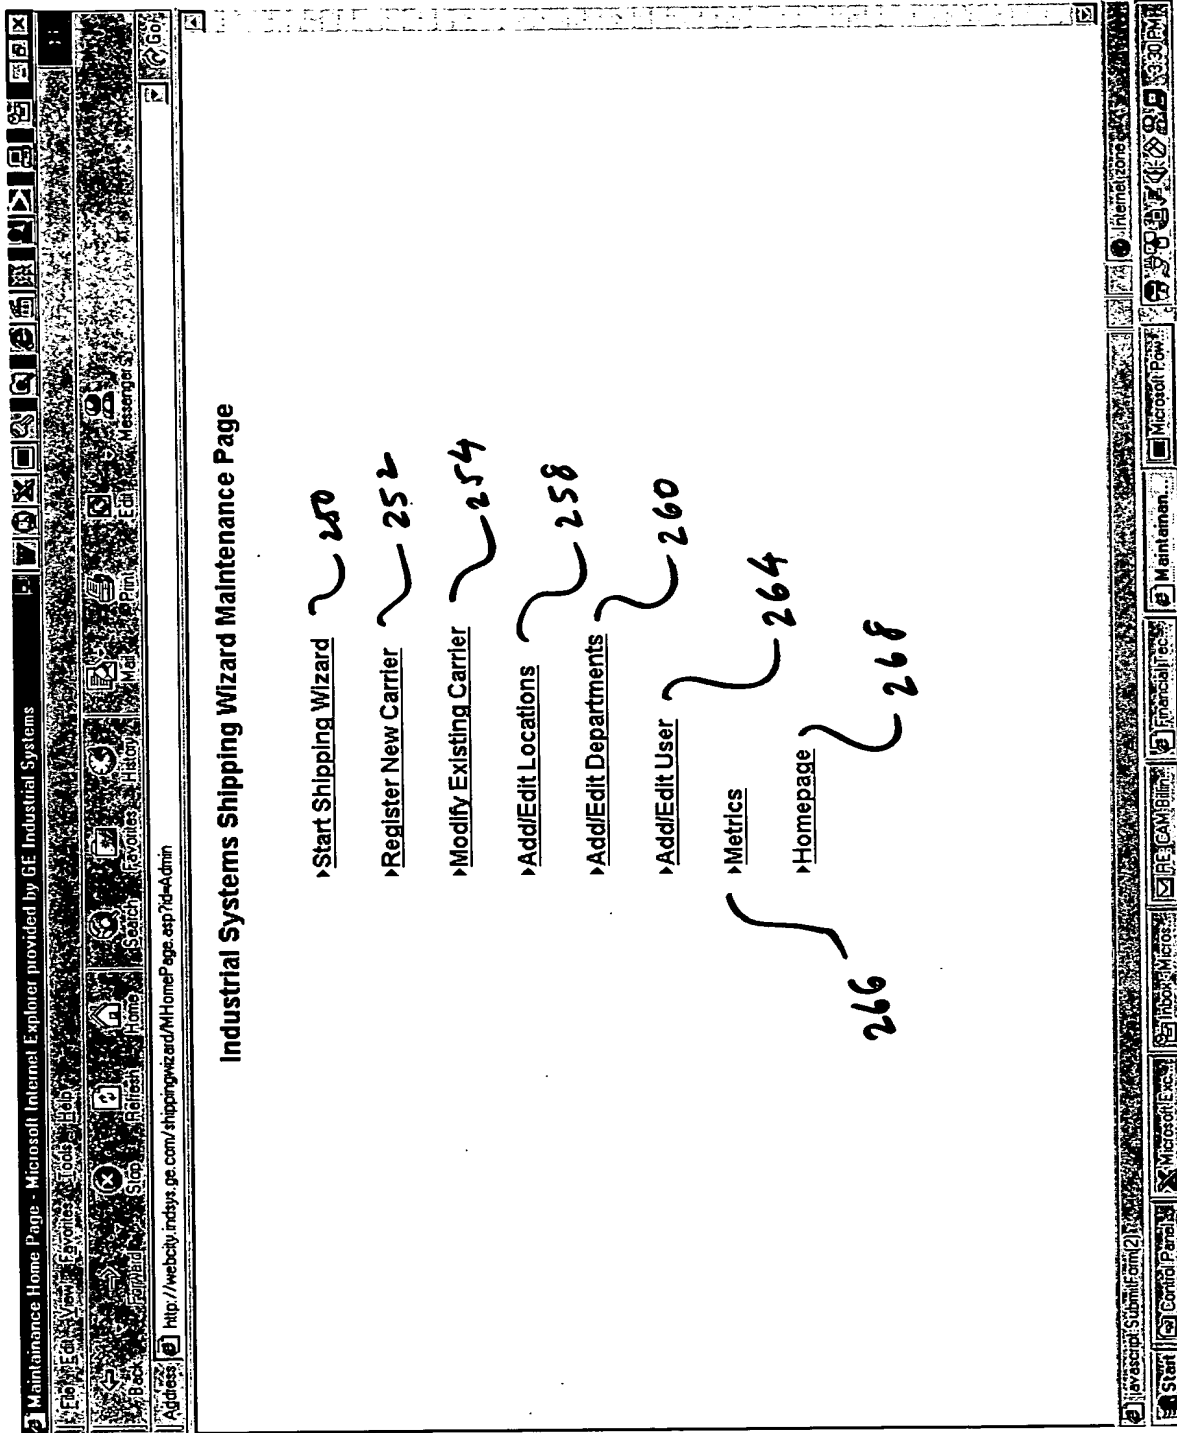 Maintainance Home Page - Microsoft Internet Explorer provided by GE Industrial Systems
File Edit View Favorites Tools Help
Back Forward Stop Refresh Home Search Favorites History Mail Print Edit Messenger
Address http://webcity.indsys.ge.com/shippingwizard/MHomePage.asp?id=Admin Go
Industrial Systems Shipping Wizard Maintenance Page
Start Shipping Wizard 250
Register New Carrier 252
Modify Existing Carrier 254
Add/Edit Locations 258
Add/Edit Departments 260
Add/Edit User 264
266 Metrics
Homepage 268
javascript:SubmitForm(2) Internet zone
Start Control Panel Microsoft Exc... Inbox - Micros... RE: CAM Billin... Financial Tec... Maintainan... Microsoft Pow... 3:30 PM